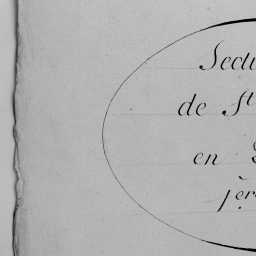 Secti
de St
en
1ère